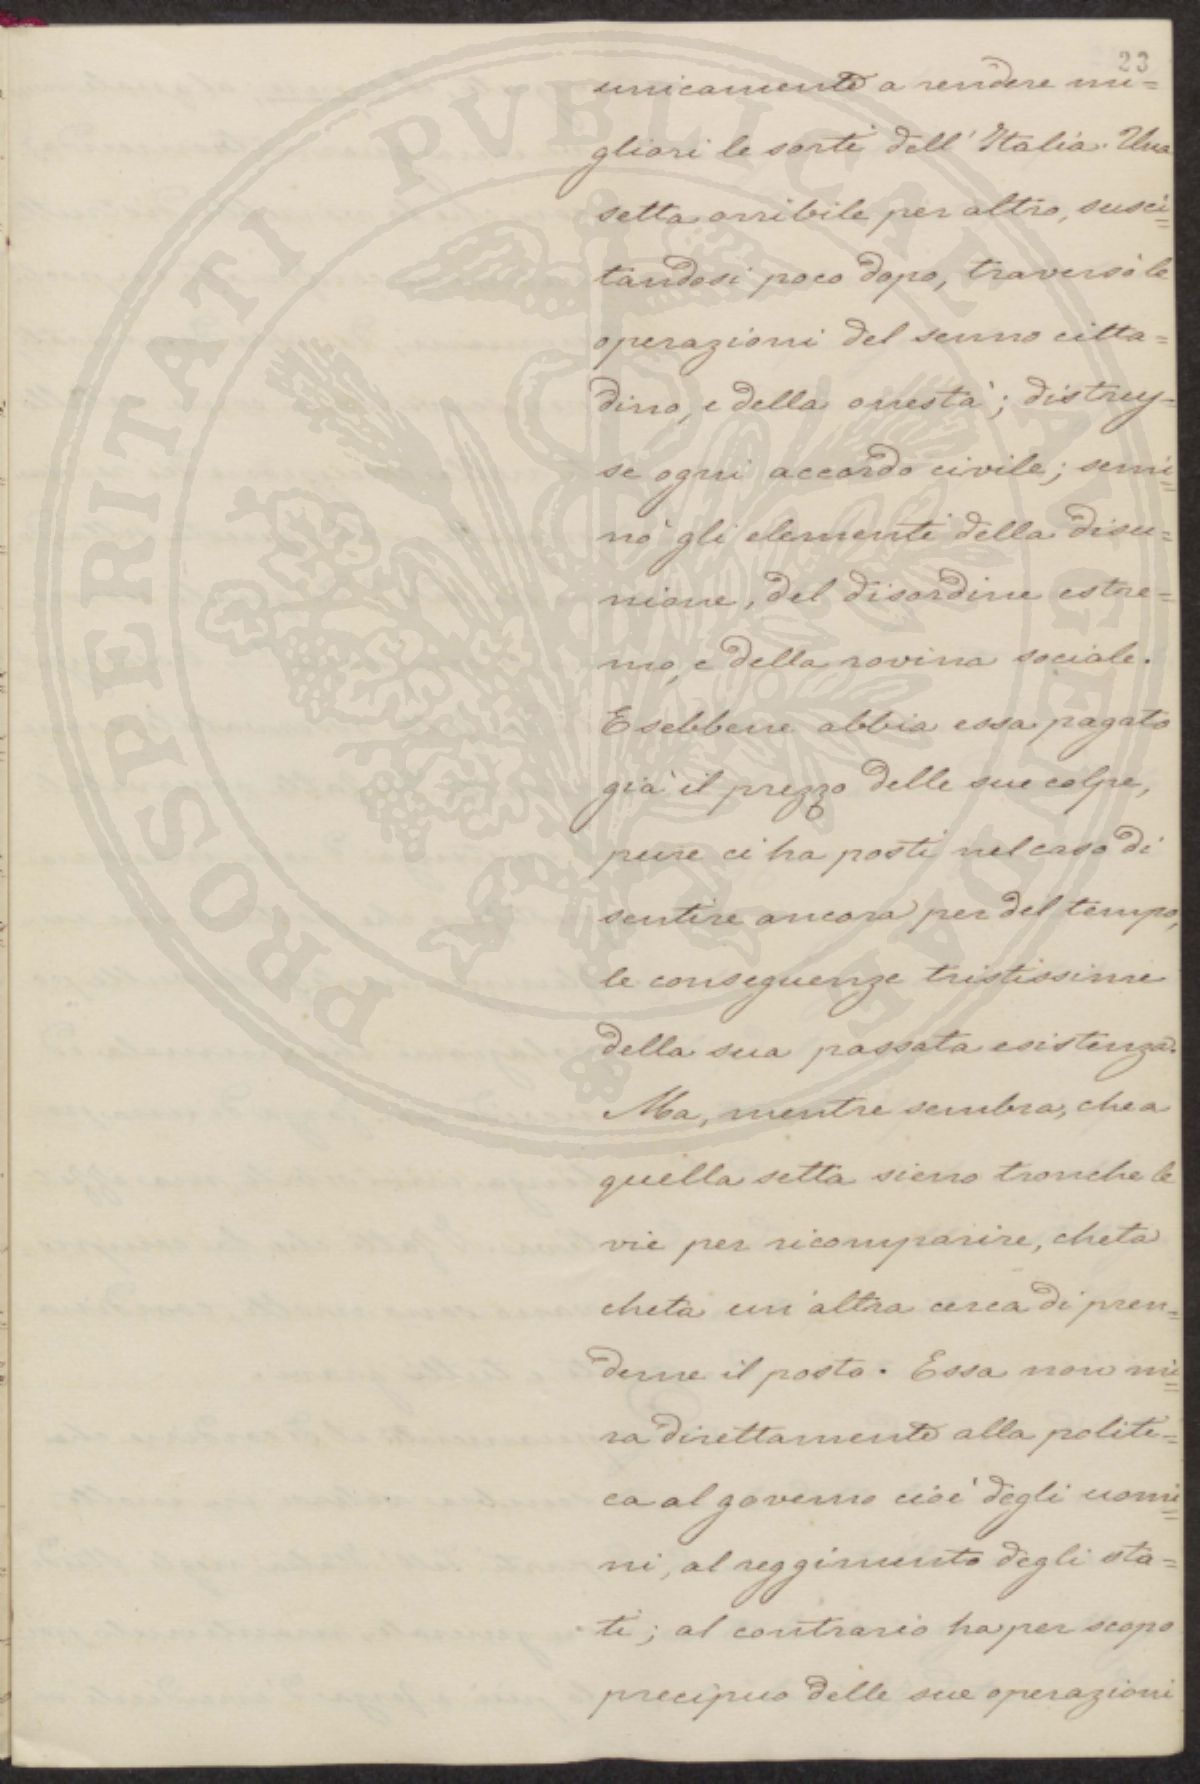 23
unicamente a rendere mi=
gliori le sorti dell' Italia. Una
setta orribile per altro, susci=
tandosi poco dopo, traversò le
operazioni del senno citta=
dino, e della onestà; distrug=
se ogni accordo civile; semi=
nò gli elementi della disu=
nione, del disordine estre=
mo, e della rovina sociale.
E sebbene abbia essa pagato
già il prezzo delle sue colpe,
pure ci ha posti nel caso di
sentire ancora per del tempo,
le conseguenze tristissime
della sua passata esistenza.
Ma, mentre sembra, che a
quella setta sieno tronche le
vie per ricomparire, cheta
cheta un'altra cerca di pren=
derne il posto. Essa non mi=
ra direttamente alla politi=
ca al governo cioè degli uomi=
ni, al reggimento degli sta=
ti; al contrario ha per scopo
precipuo delle sue operazioni
PROSPERITATI PVBLICAE AVGENDAE